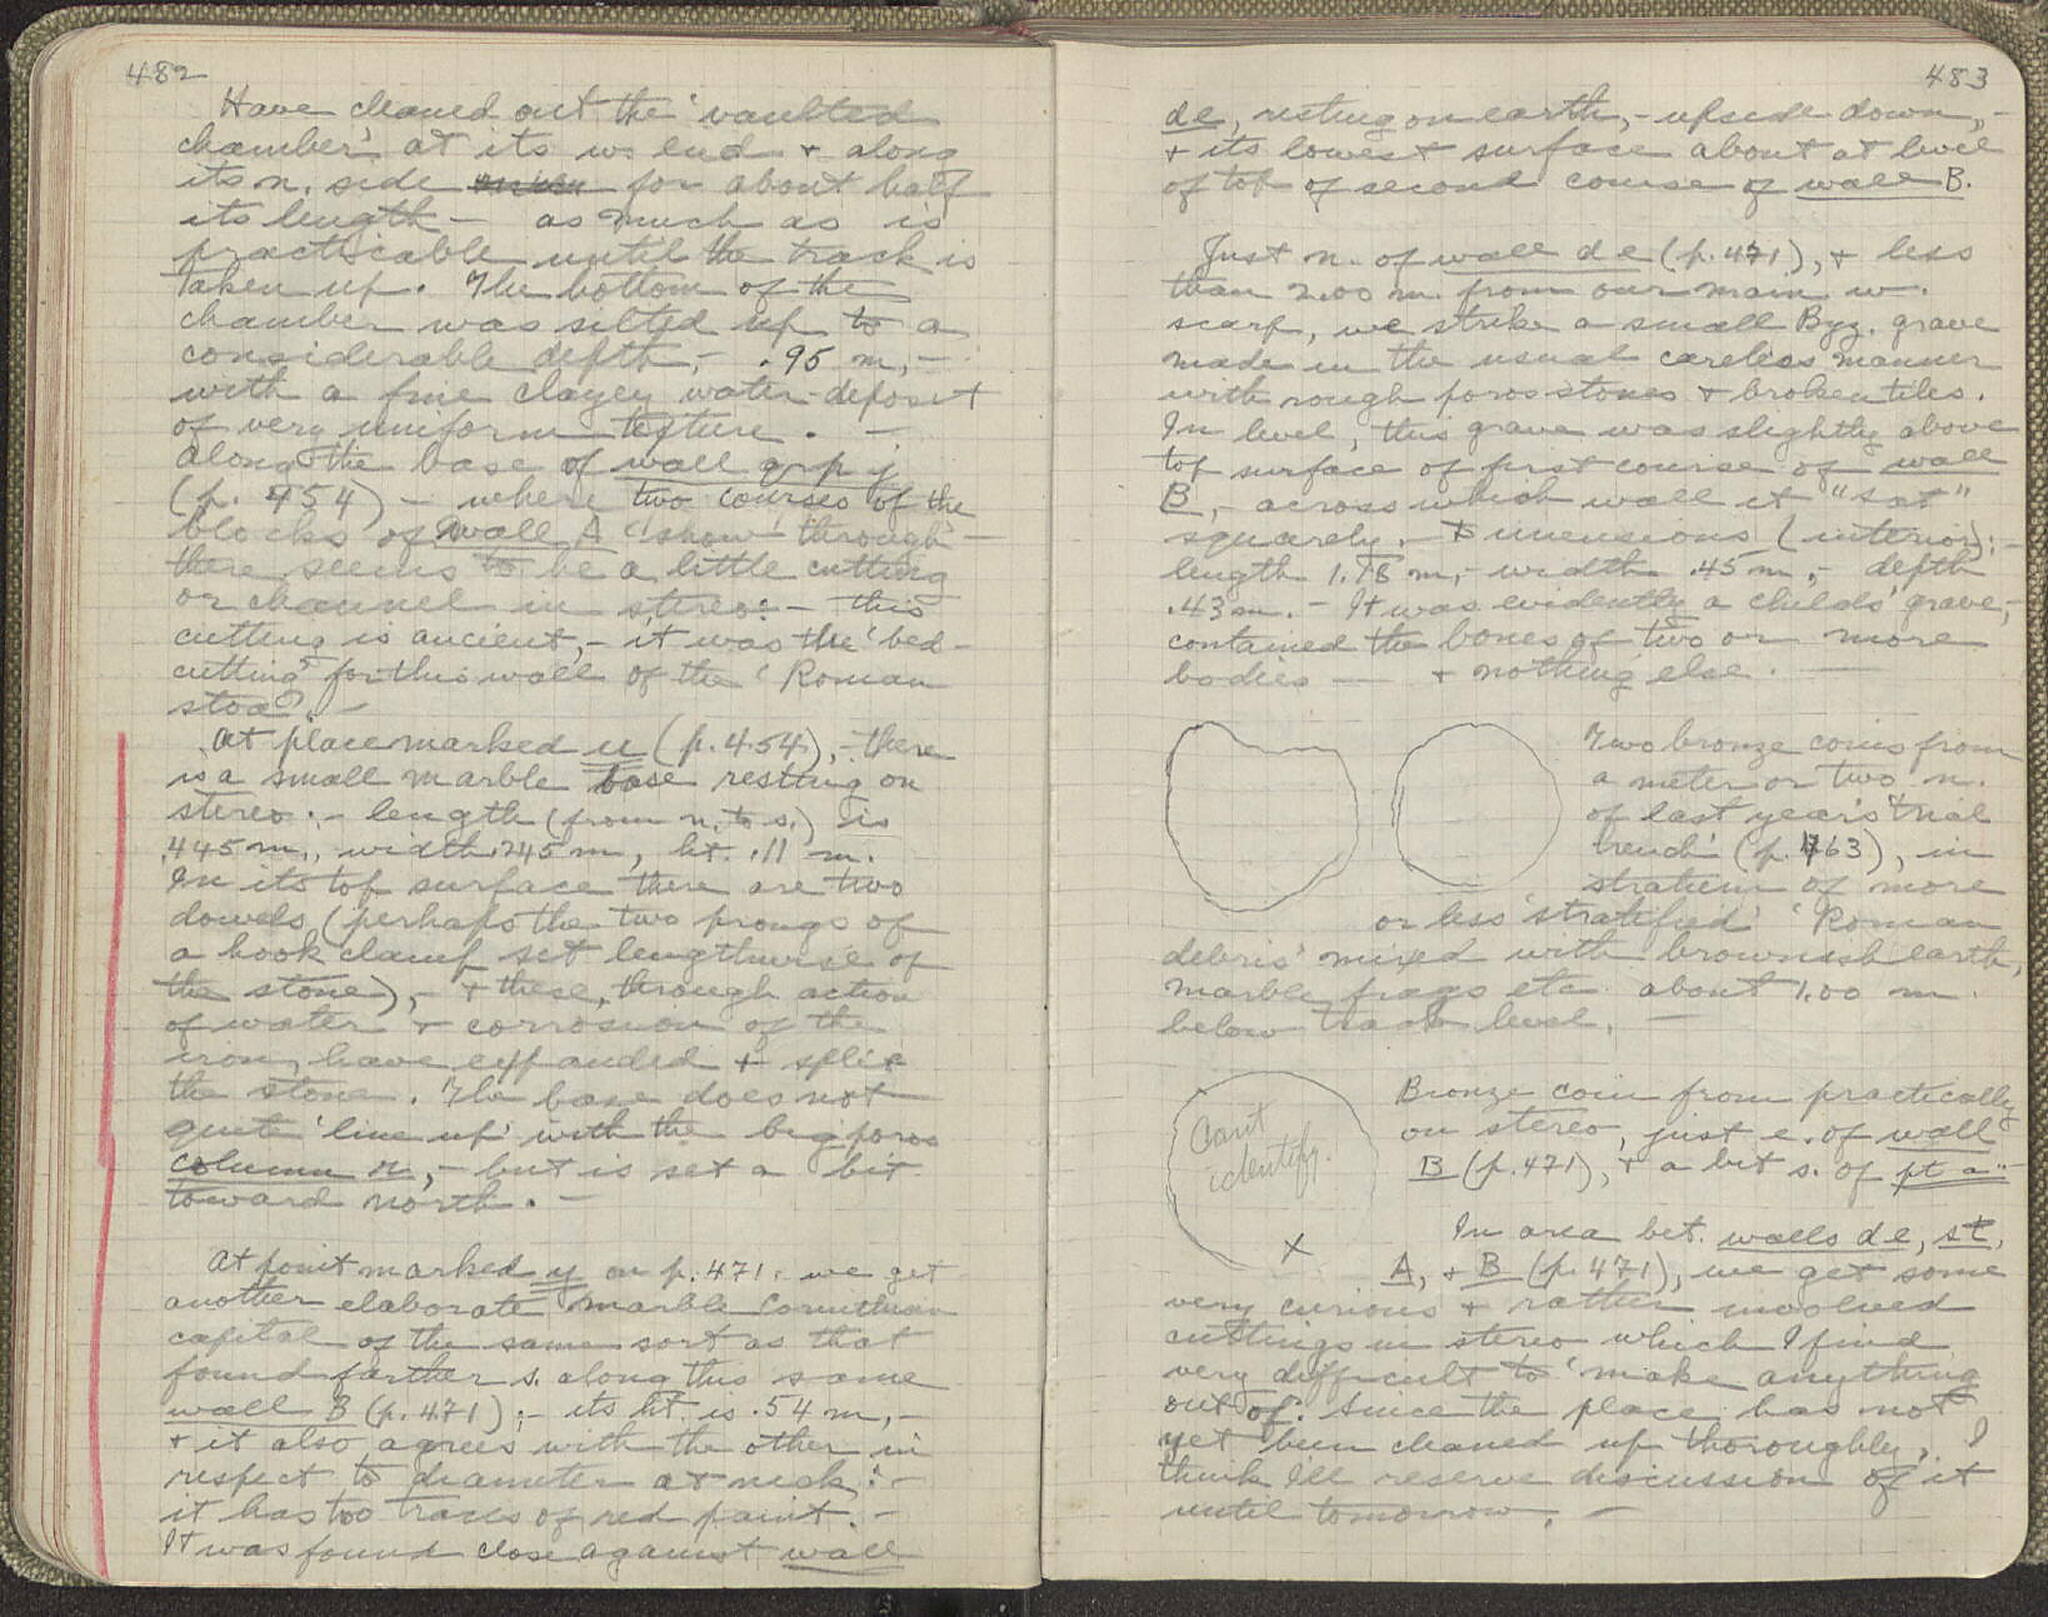 482
Have cleaned out the 'vaulted
chamber' at its w. end + along
its n. side for about half
its length – as much as is
practicable until the track is
taken up. The bottom of the
chamber was silted up to a
considerable depth, – .95 m, –
with a fine clayey water-deposit
of very uniform texture. –
Along the base of wall
(p. 454) – where two courses of the
blocks of wall A 'show through' –
there seems to be a little cutting
or channel in stereo: – this
cutting is ancient, – it was the 'bed-
cutting' for this wall of the 'Roman
stoa'. –
At place marked u (p. 454), – there
is a small marble base resting on
stereo: – length (from n. to s.) is
.445 m., width .245 m, ht. .11 m.
In its top surface there are two
dowels (perhaps the two prongs of
a hook clamp set lengthwise of
the stone), – + these, through action
of water + corrosion of the
iron, have expanded + split
the stone. The base does not
quite 'line up' with the big poros
column n, – but is set a bit
toward north. –
At point marked y on p. 471, we get
another elaborate marble Corinthian
capital of the same sort as that
found farther s. along this same
wall B (p. 471): – its ht. is .54 m, –
+ it also agrees with the other in
respect to diameter at neck: –
it has too traces of red paint. –
It was found close against wall
483
de, resting on earth, – upside down, –
+ its lowest surface about at level
of top of second course of wall B.
Just n. of wall de (p. 471), + less
than 2.00 m. from our main w.
scarp, we strike a small Byz. grave
made in the usual careless manner
with rough poros stones + broken tiles.
In level, this grave was slightly above
top surface of first course of wall
B, – across which wall it "sat"
squarely. – Dimensions (interior): –
length 1.18 m, – width .45 m, – depth
.43 m. – It was evidently a childs' grave, –
contained the bones of two or more
bodies — + nothing else. —
Two bronze coins from
a meter or two n.
of last year's 'trial
trench' (p. 463), in
stratum of more
or less 'stratified' 'Roman
debris' mixed with brownish earth,
marble frags etc. about 1.00 m.
below track level. –
Can't
identify.
X
Bronze coin from practically
on stereo, just e. of wall
B (p. 471), + a bit s. of pt a –
In area bet. walls de, st,
A, + B (p. 471), we get some
very curious + rather involved
cuttings in stereo which I find
very difficult to 'make anything
out of'. Since the place has not
yet been cleaned up thoroughly, I
think I'll reserve discussion of it
until tomorrow. –